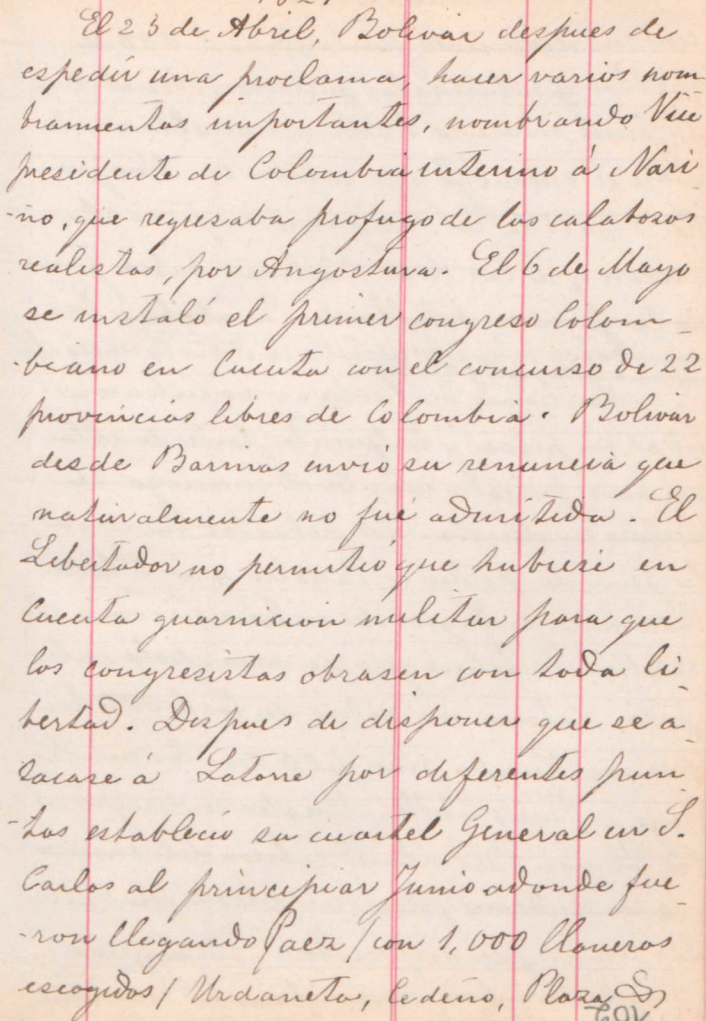 El 25 de Abril, Bolivar despues de
espedir una proclama, hacer varios nom
bramientos importantes, nombrando Vice
presidente de Colombia interino á Nari
-ño, que regresaba profugo de los calabozos
realistas, por Angostura. El 6 de Mayo
se instaló el primer congreso Colom-
-biano en Cucuta con el concurso de 22
provincias libres de Colombia. Bolivar
desde Barinas envió su renuncia que
naturalmente no fué admitida. El
Libertador no permitió que hubiese en
Cucuta guarnicion militar para que
los congresistas obrasen con toda li-
bertad. Despues de disponer que se a-
tacase á Latorre por diferentes pun
-tos estableció su cuartel General en S.
Carlos al principiar Junio adonde fue-
-ron llegando Paez / con 1,000 llaneros
escogidos / Urdaneta, Cedeño, Plaza